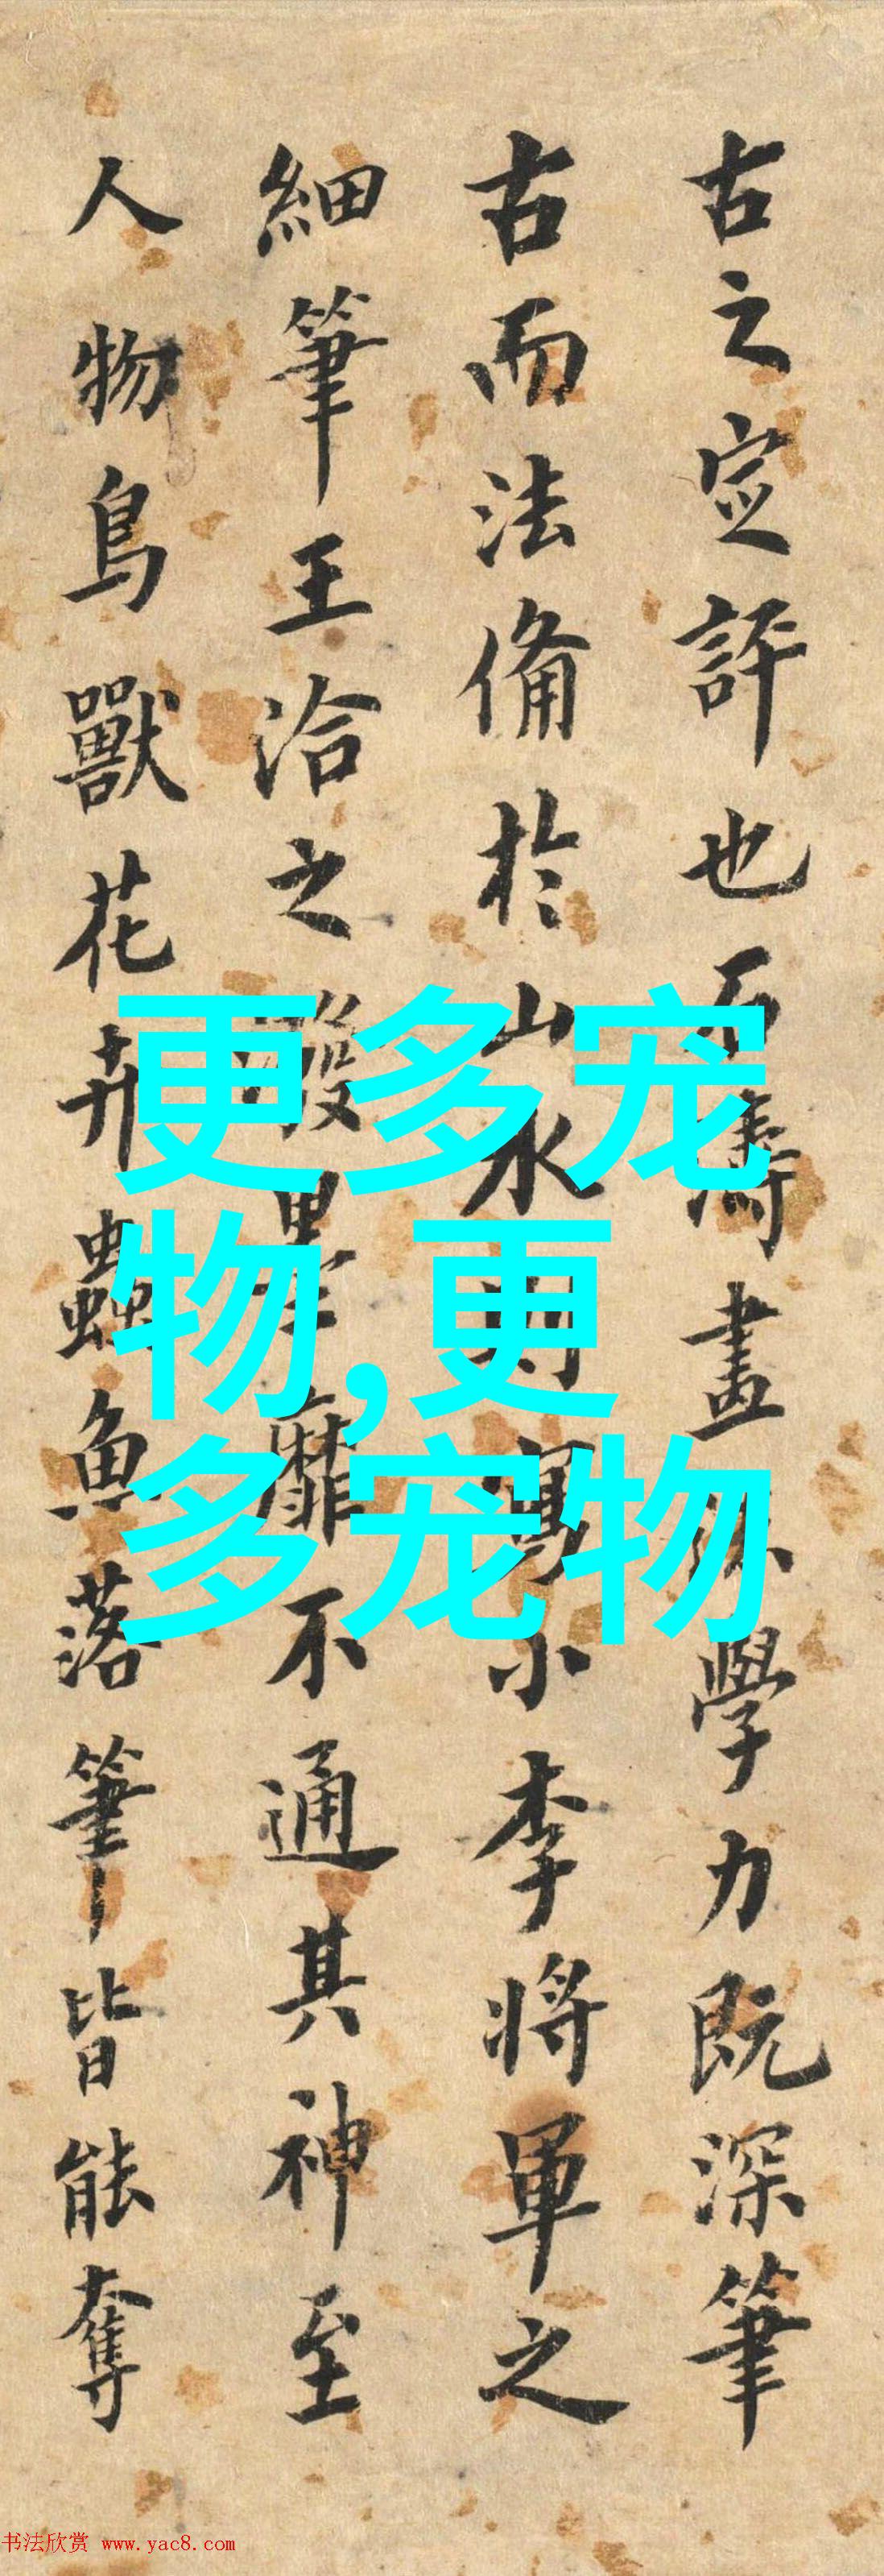 古之㝎評也石濤畫學力既深筆
古而法備於山水則寫小李將軍之
細筆王洽之潑墨靡不通其神至
人物鳥獸花卉蟲魚落筆皆能奪
更多宠
物,更
多宠物
书法欣赏 www.yac8.com